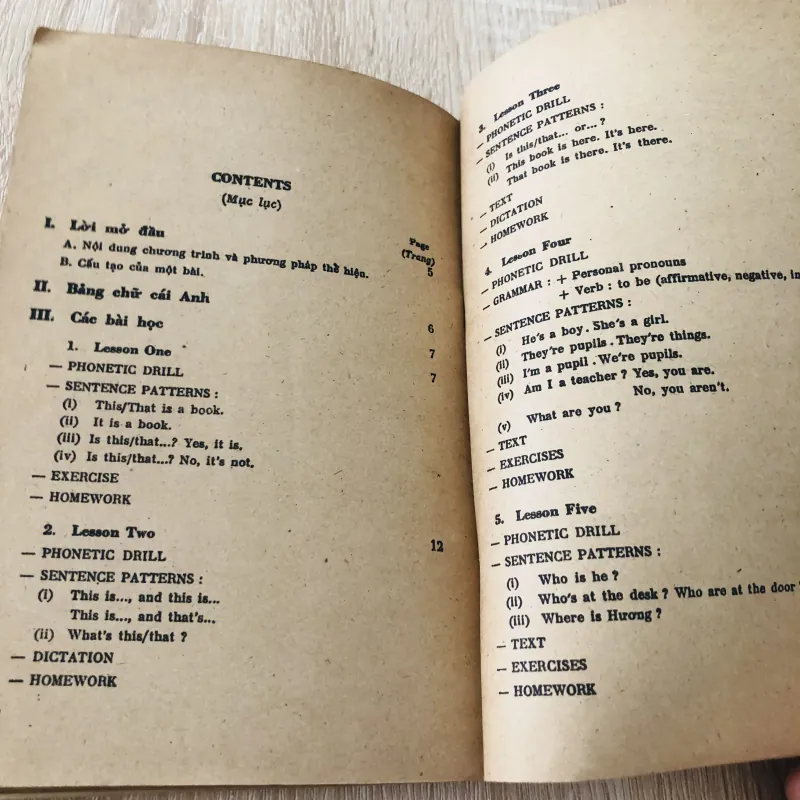 CONTENTS
(Mục lục)
Page
(Trang)
I. Lời mở đầu
A. Nội dung chương trình và phương pháp thể hiện. 5
B. Cấu tạo của một bài.
II. Bảng chữ cái Anh 6
III. Các bài học 7
1. Lesson One 7
— PHONETIC DRILL
— SENTENCE PATTERNS :
(i) This/That is a book.
(ii) It is a book.
(iii) Is this/that...? Yes, it is.
(iv) Is this/that...? No, it's not.
— EXERCISE
— HOMEWORK
2. Lesson Two 12
— PHONETIC DRILL
— SENTENCE PATTERNS :
(i) This is..., and this is...
This is..., and that's...
(ii) What's this/that ?
— DICTATION
— HOMEWORK
3. Lesson Three
— PHONETIC DRILL
— SENTENCE PATTERNS :
(i) Is this/that... or... ?
(ii) This book is here. It's here.
That book is there. It's there.
— TEXT
— DICTATION
— HOMEWORK
4. Lesson Four
— PHONETIC DRILL
— GRAMMAR : + Personal pronouns
+ Verb : to be (affirmative, negative, in
— SENTENCE PATTERNS :
(i) He's a boy. She's a girl.
(ii) They're pupils. They're things.
(iii) I'm a pupil. We're pupils.
(iv) Am I a teacher ? Yes, you are.
No, you aren't.
(v) What are you ?
— TEXT
— EXERCISES
— HOMEWORK
5. Lesson Five
— PHONETIC DRILL
— SENTENCE PATTERNS :
(i) Who is he ?
(ii) Who's at the desk ? Who are at the door ?
(iii) Where is Hương ?
— TEXT
— EXERCISES
— HOMEWORK